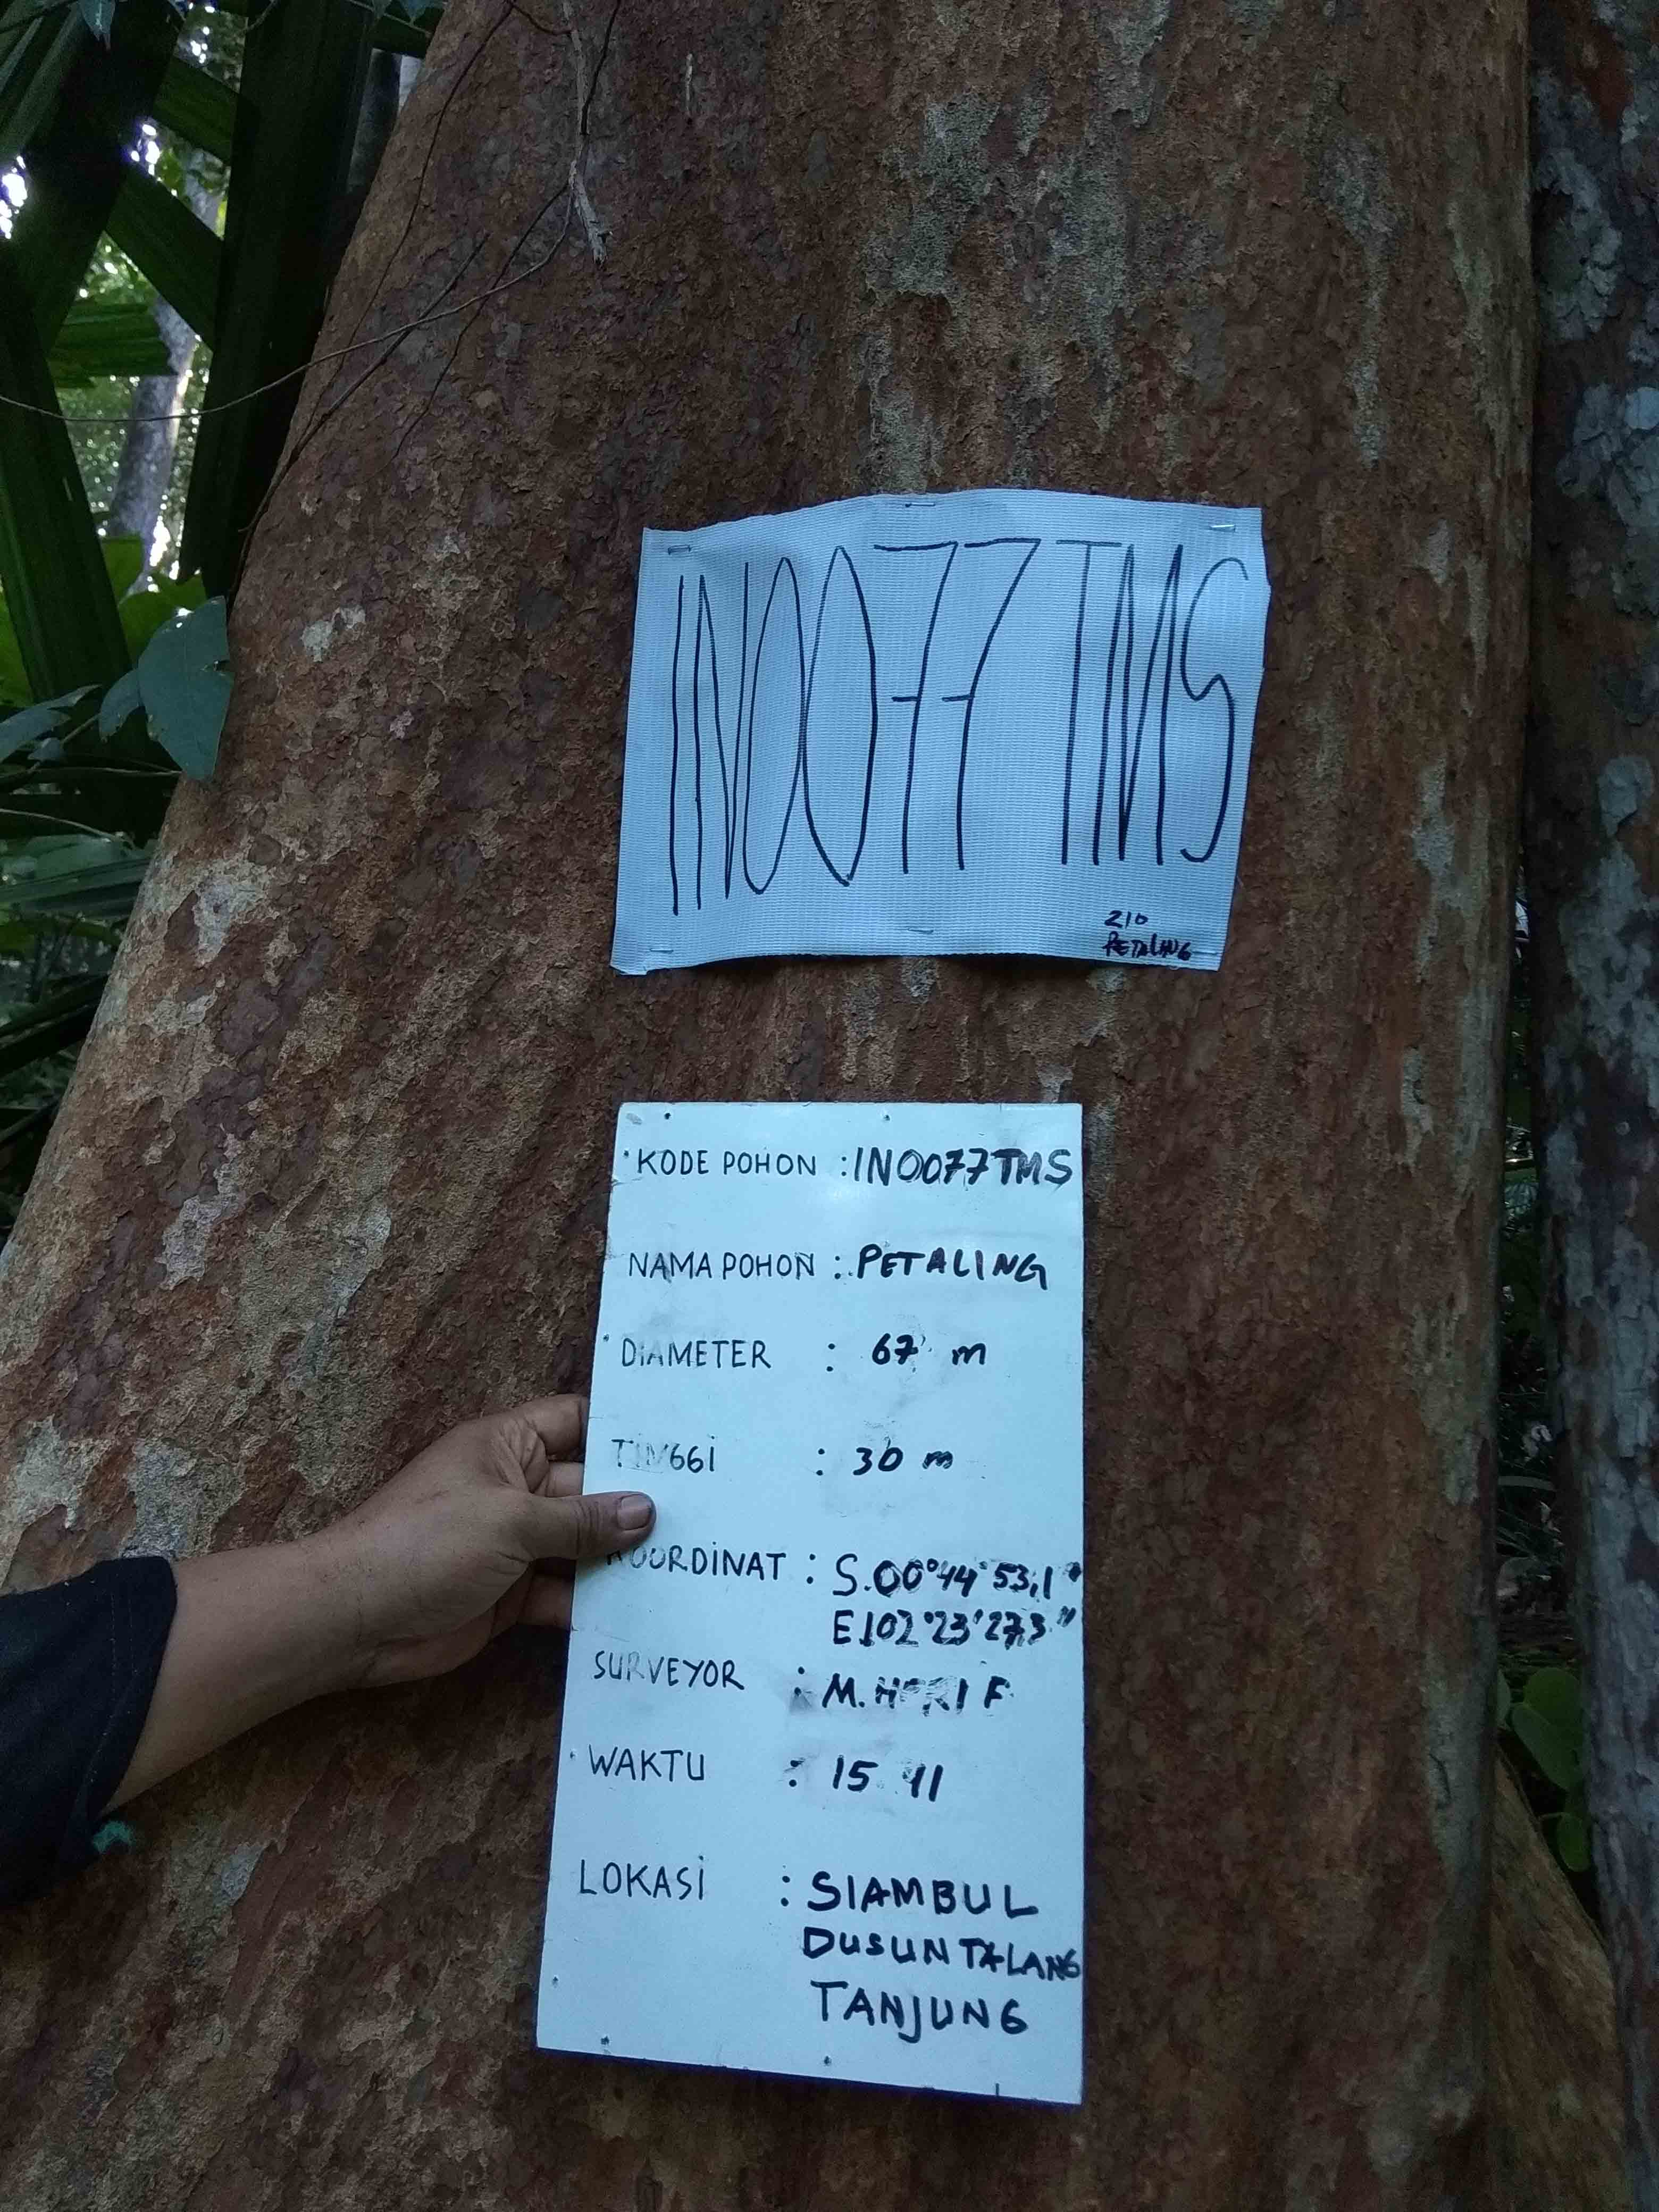 IN0077 TMS
210
PETALING
KODE POHON : IN0077TMS
NAMA POHON : PETALING
DIAMETER : 67 m
TINGGI : 30 m
KOORDINAT : S.00°44'53,1"
E.102°23'27,3"
SURVEYOR : M. HERI F
WAKTU : 15 41
LOKASI : SIAMBUL
DUSUN TALANG
TANJUNG